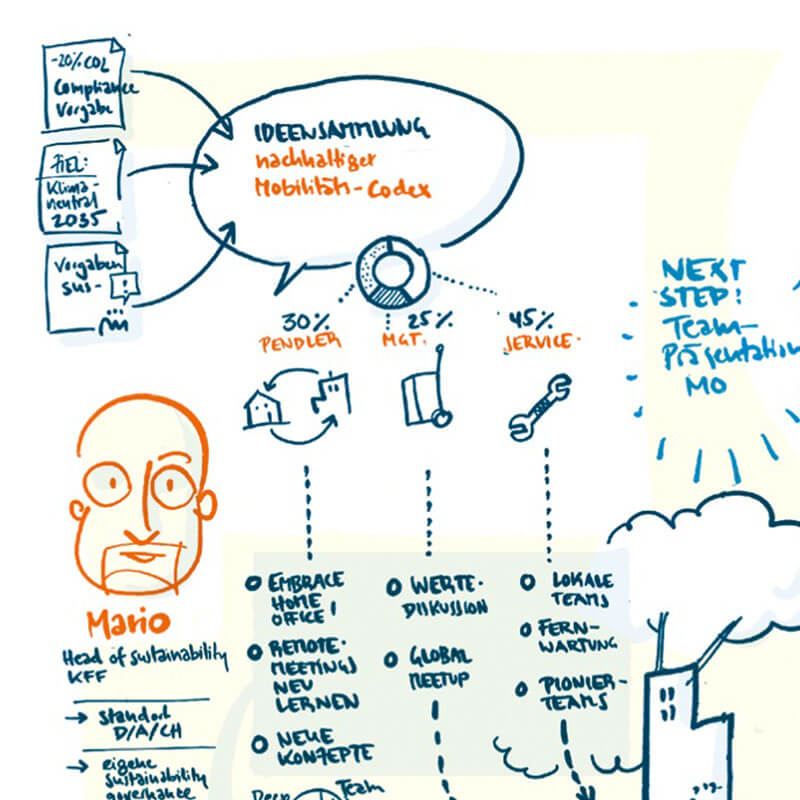 -20% CO2
Compliance
Vorgabe
ZIEL:
Klima-
neutral
2035
Vorgaben
SUS-
!
IDEENSAMMLUNG
nachhaltiger
Mobilitäts-Codex
30%
PENDLER
25%
MGT.
45%
SERVICE
NEXT
STEP:
Team-
Präsentation
MO
Mario
Head of sustainability
KFF
→ Standort
D/A/CH
→ eigene
sustainability
governance
EMBRACE
HOME
OFFICE!
REMOTE-
MEETINGS
NEU
LERNEN
NEUE
KONZEPTE
Deep
Team
WERTE-
DISKUSSION
GLOBAL
MEETUP
LOKALE
TEAMS
FERN-
WARTUNG
PIONIER-
TEAMS